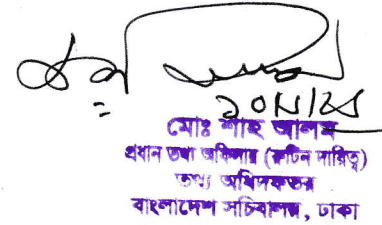 মোঃ শাহ আলম
প্রধান তথ্য অফিসার (রুটিন দায়িত্ব)
তথ্য অধিদফতর
বাংলাদেশ সচিবালয়, ঢাকা